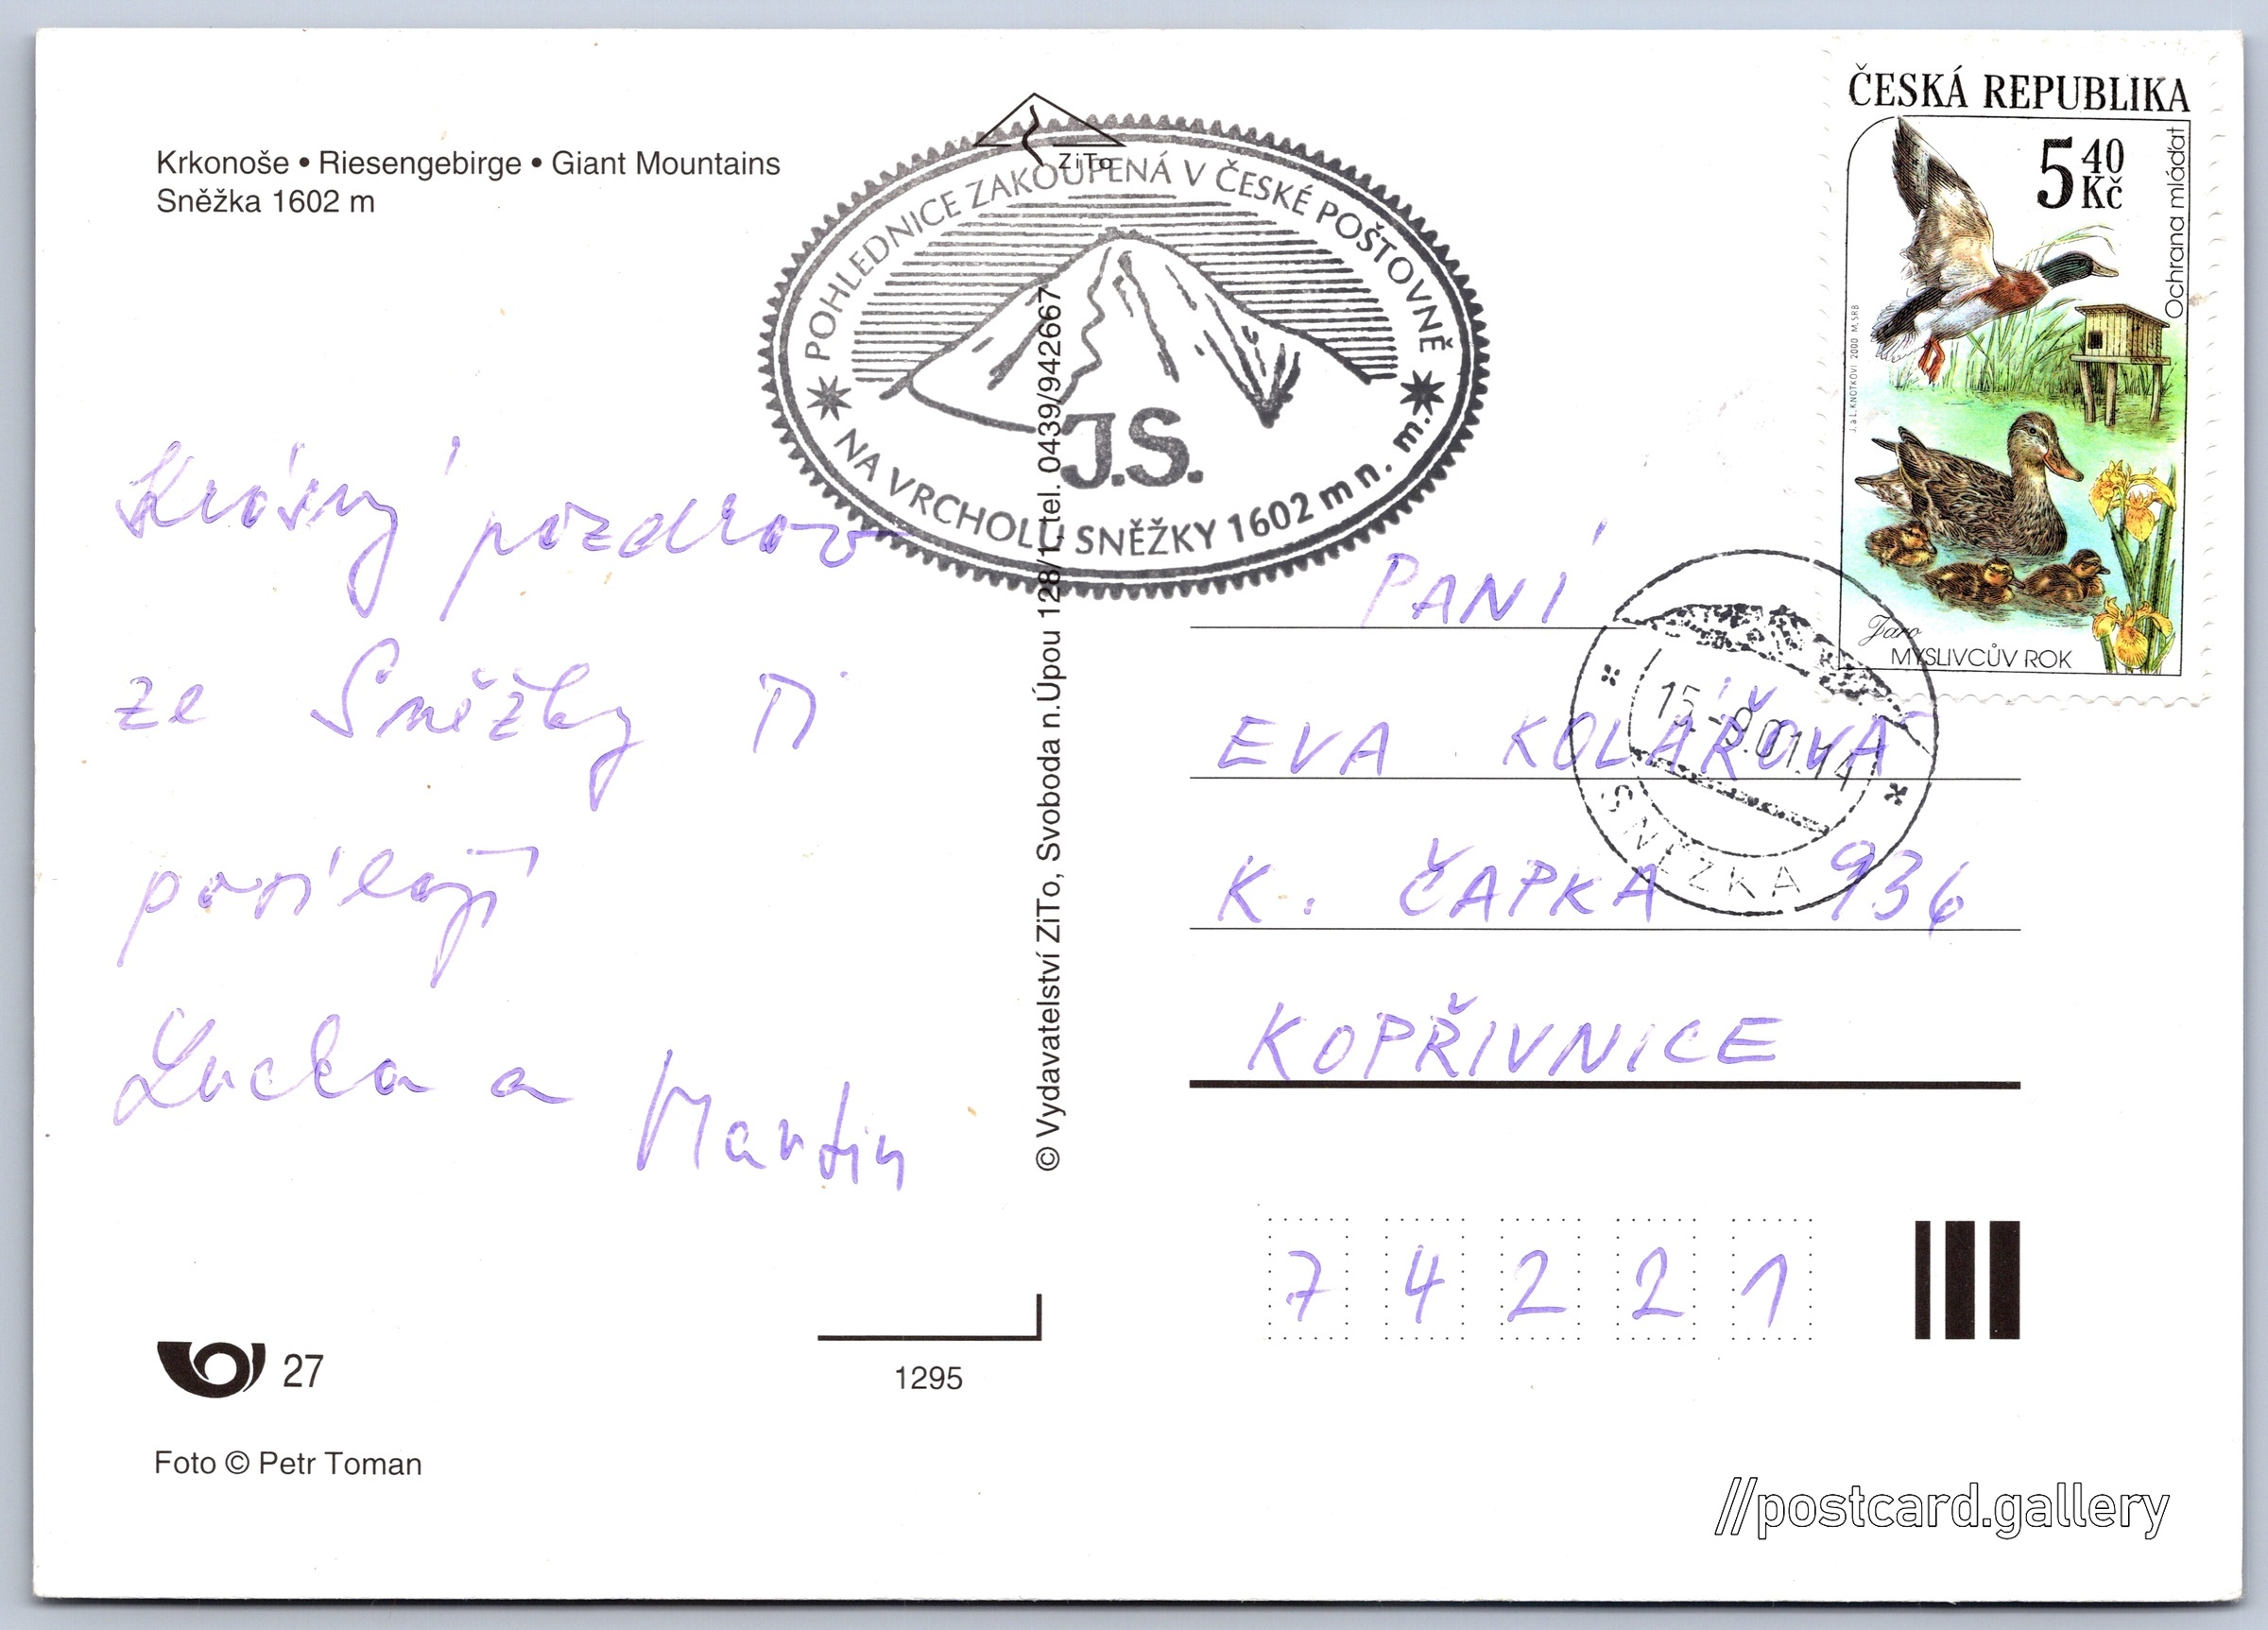 Krkonoše • Riesengebirge • Giant Mountains
Sněžka 1602 m
ZiTo
POHLEDNICE ZAKOUPENÁ V ČESKÉ POŠTOVNĚ
J.S.
NA VRCHOLU SNĚŽKY 1602 m n. m.
ČESKÁ REPUBLIKA
5 40 Kč
Ochrana mláďat
J. a L. KNOTKOVI 2000 M. SRB
Jaro
MYSLIVCŮV ROK
Krásný pozdrav
ze Sněžky Ti
posílají
Lucka a Martin
© Vydavatelství ZiTo, Svoboda n.Úpou 128/1, tel. 0439/942667
PANÍ
EVA KOLÁŘOVÁ
K. ČAPKA 936
KOPŘIVNICE
74221
SNĚŽKA
27
1295
Foto © Petr Toman
//postcard.gallery